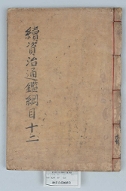 續資治通鑑綱目十二